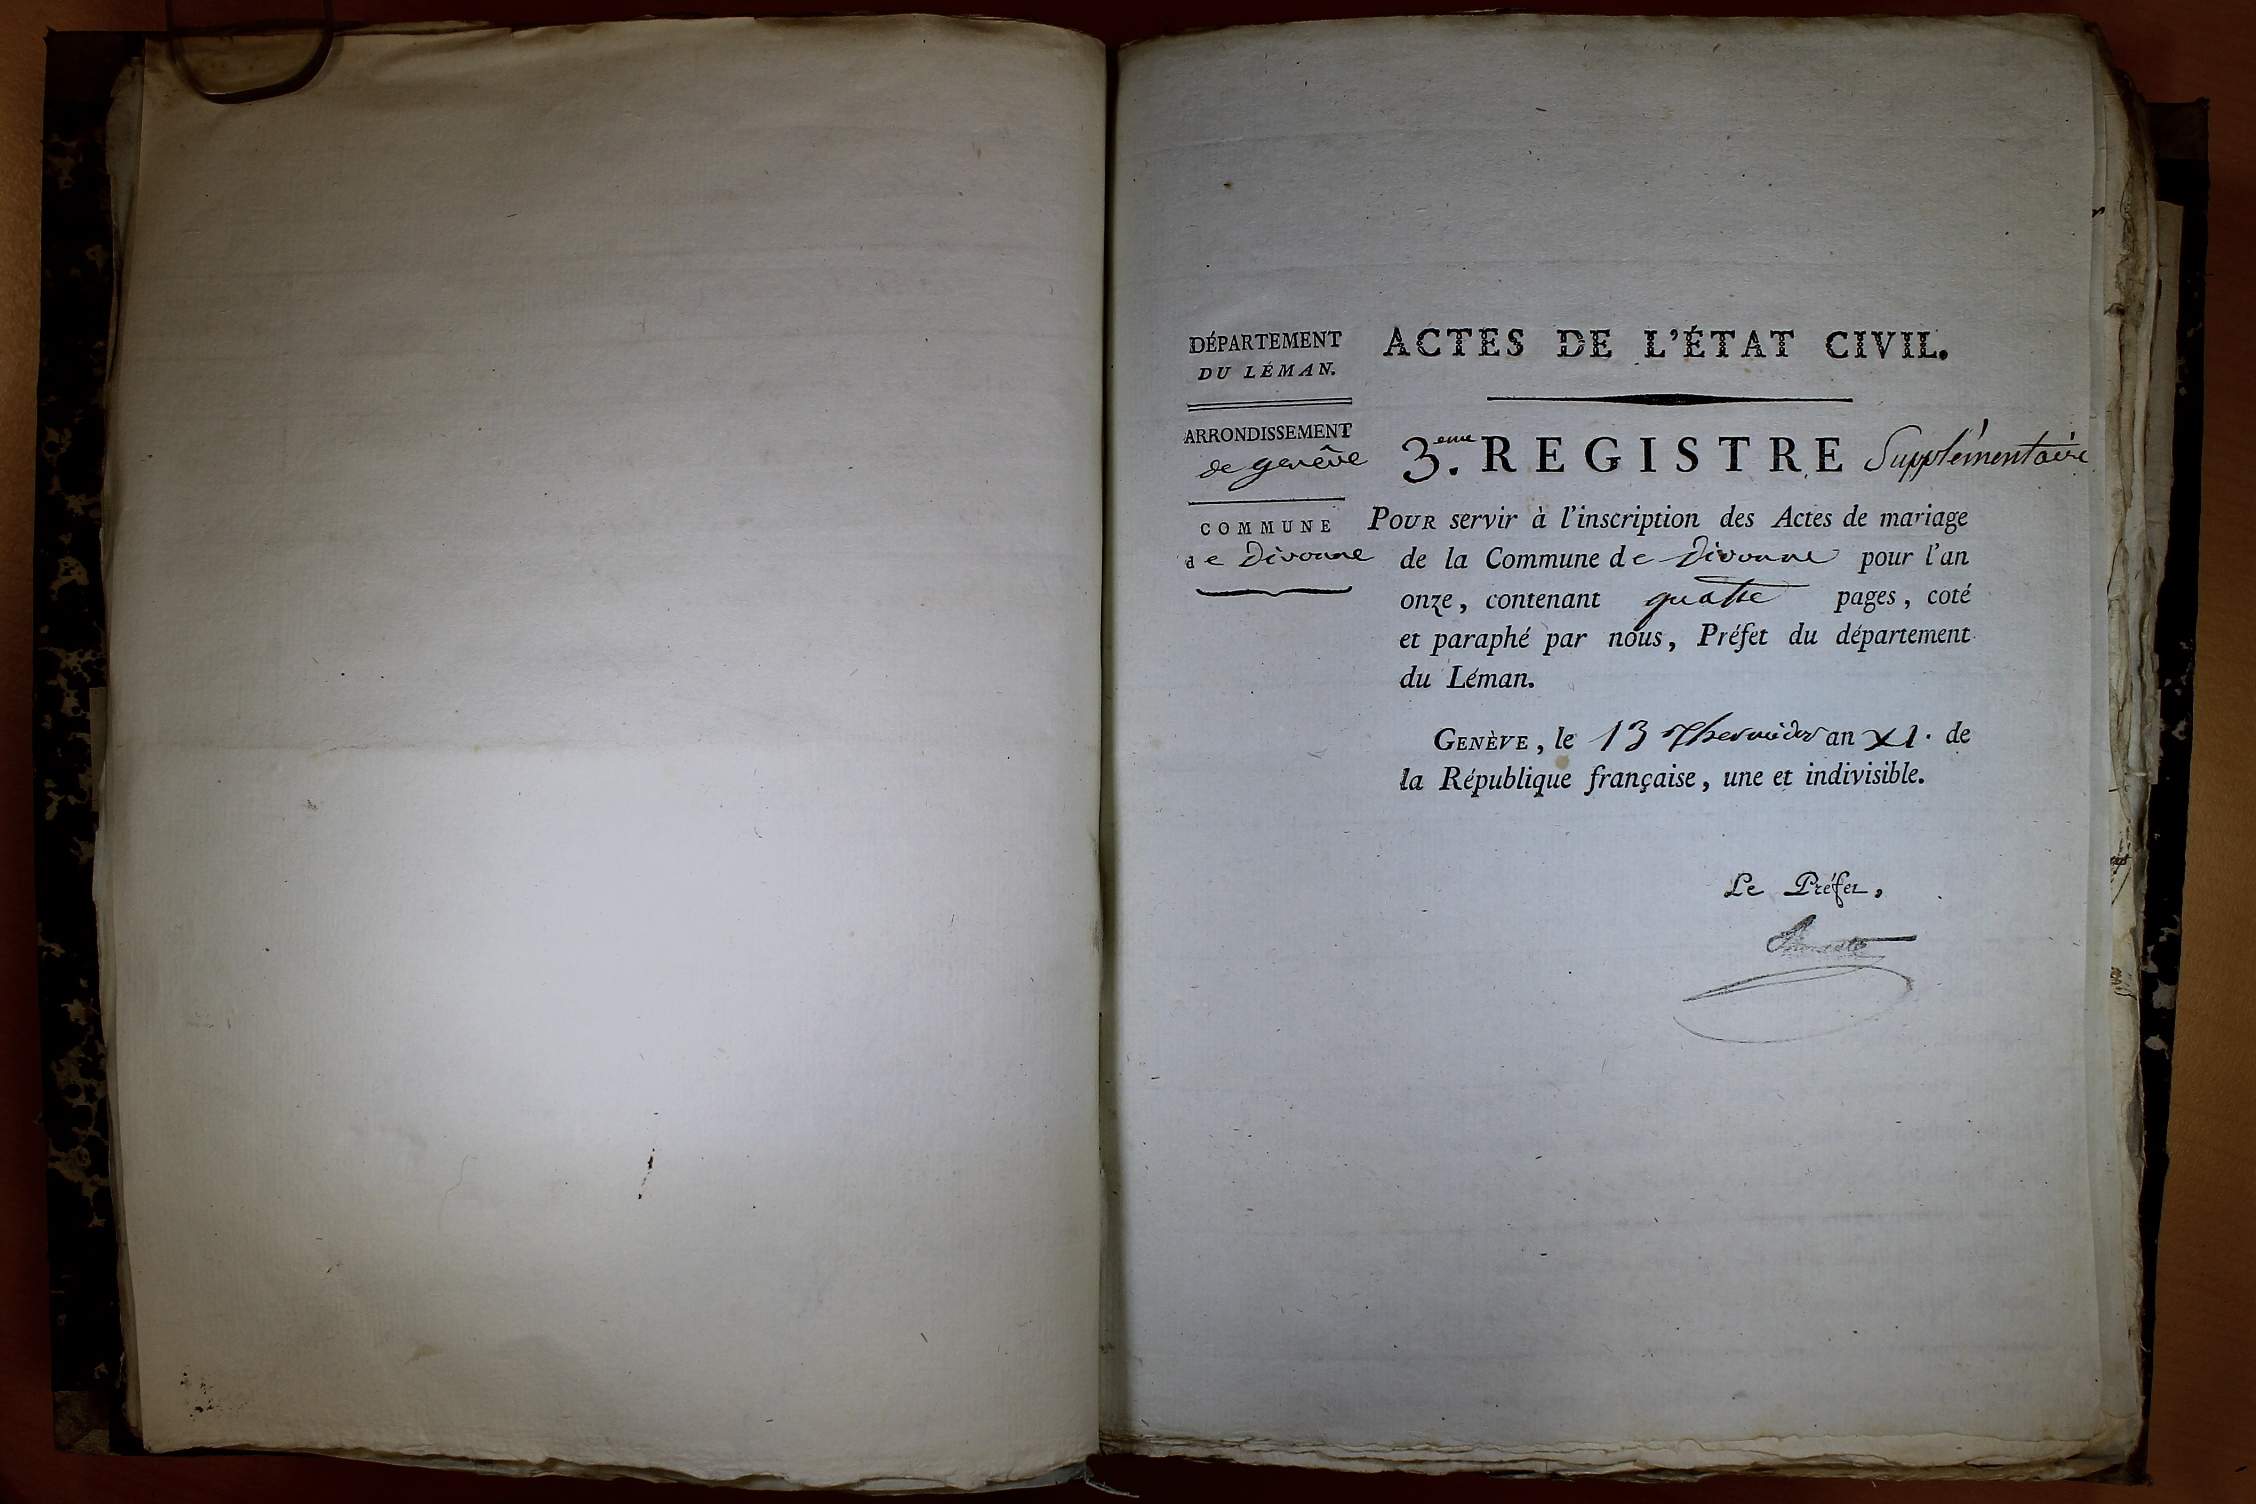 DÉPARTEMENT
DU LÉMAN.
ARRONDISSEMENT
de genêve
COMMUNE
de Divonne
ACTES DE L'ÉTAT CIVIL.
3.eme REGISTRE Supplémentaire
POUR servir à l'inscription des Actes de mariage
de la Commune de Divonne pour l'an
onze, contenant quatre pages, coté
et paraphé par nous, Préfet du département
du Léman.
GENÈVE, le 13 Thermidor an XI. de
la République française, une et indivisible.
Le Préfet,